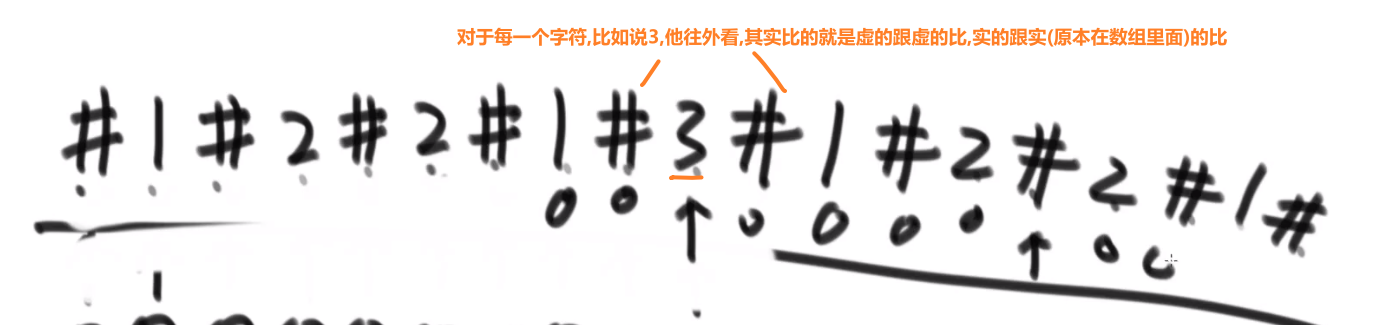 对于每一个字符,比如说3,他往外看,其实比的就是虚的跟虚的比,实的跟实(原本在数组里面)的比
#1#2#2#1#3#1#2#2#1#
0 0 ↑ 0 0 0 0 ↑ 0